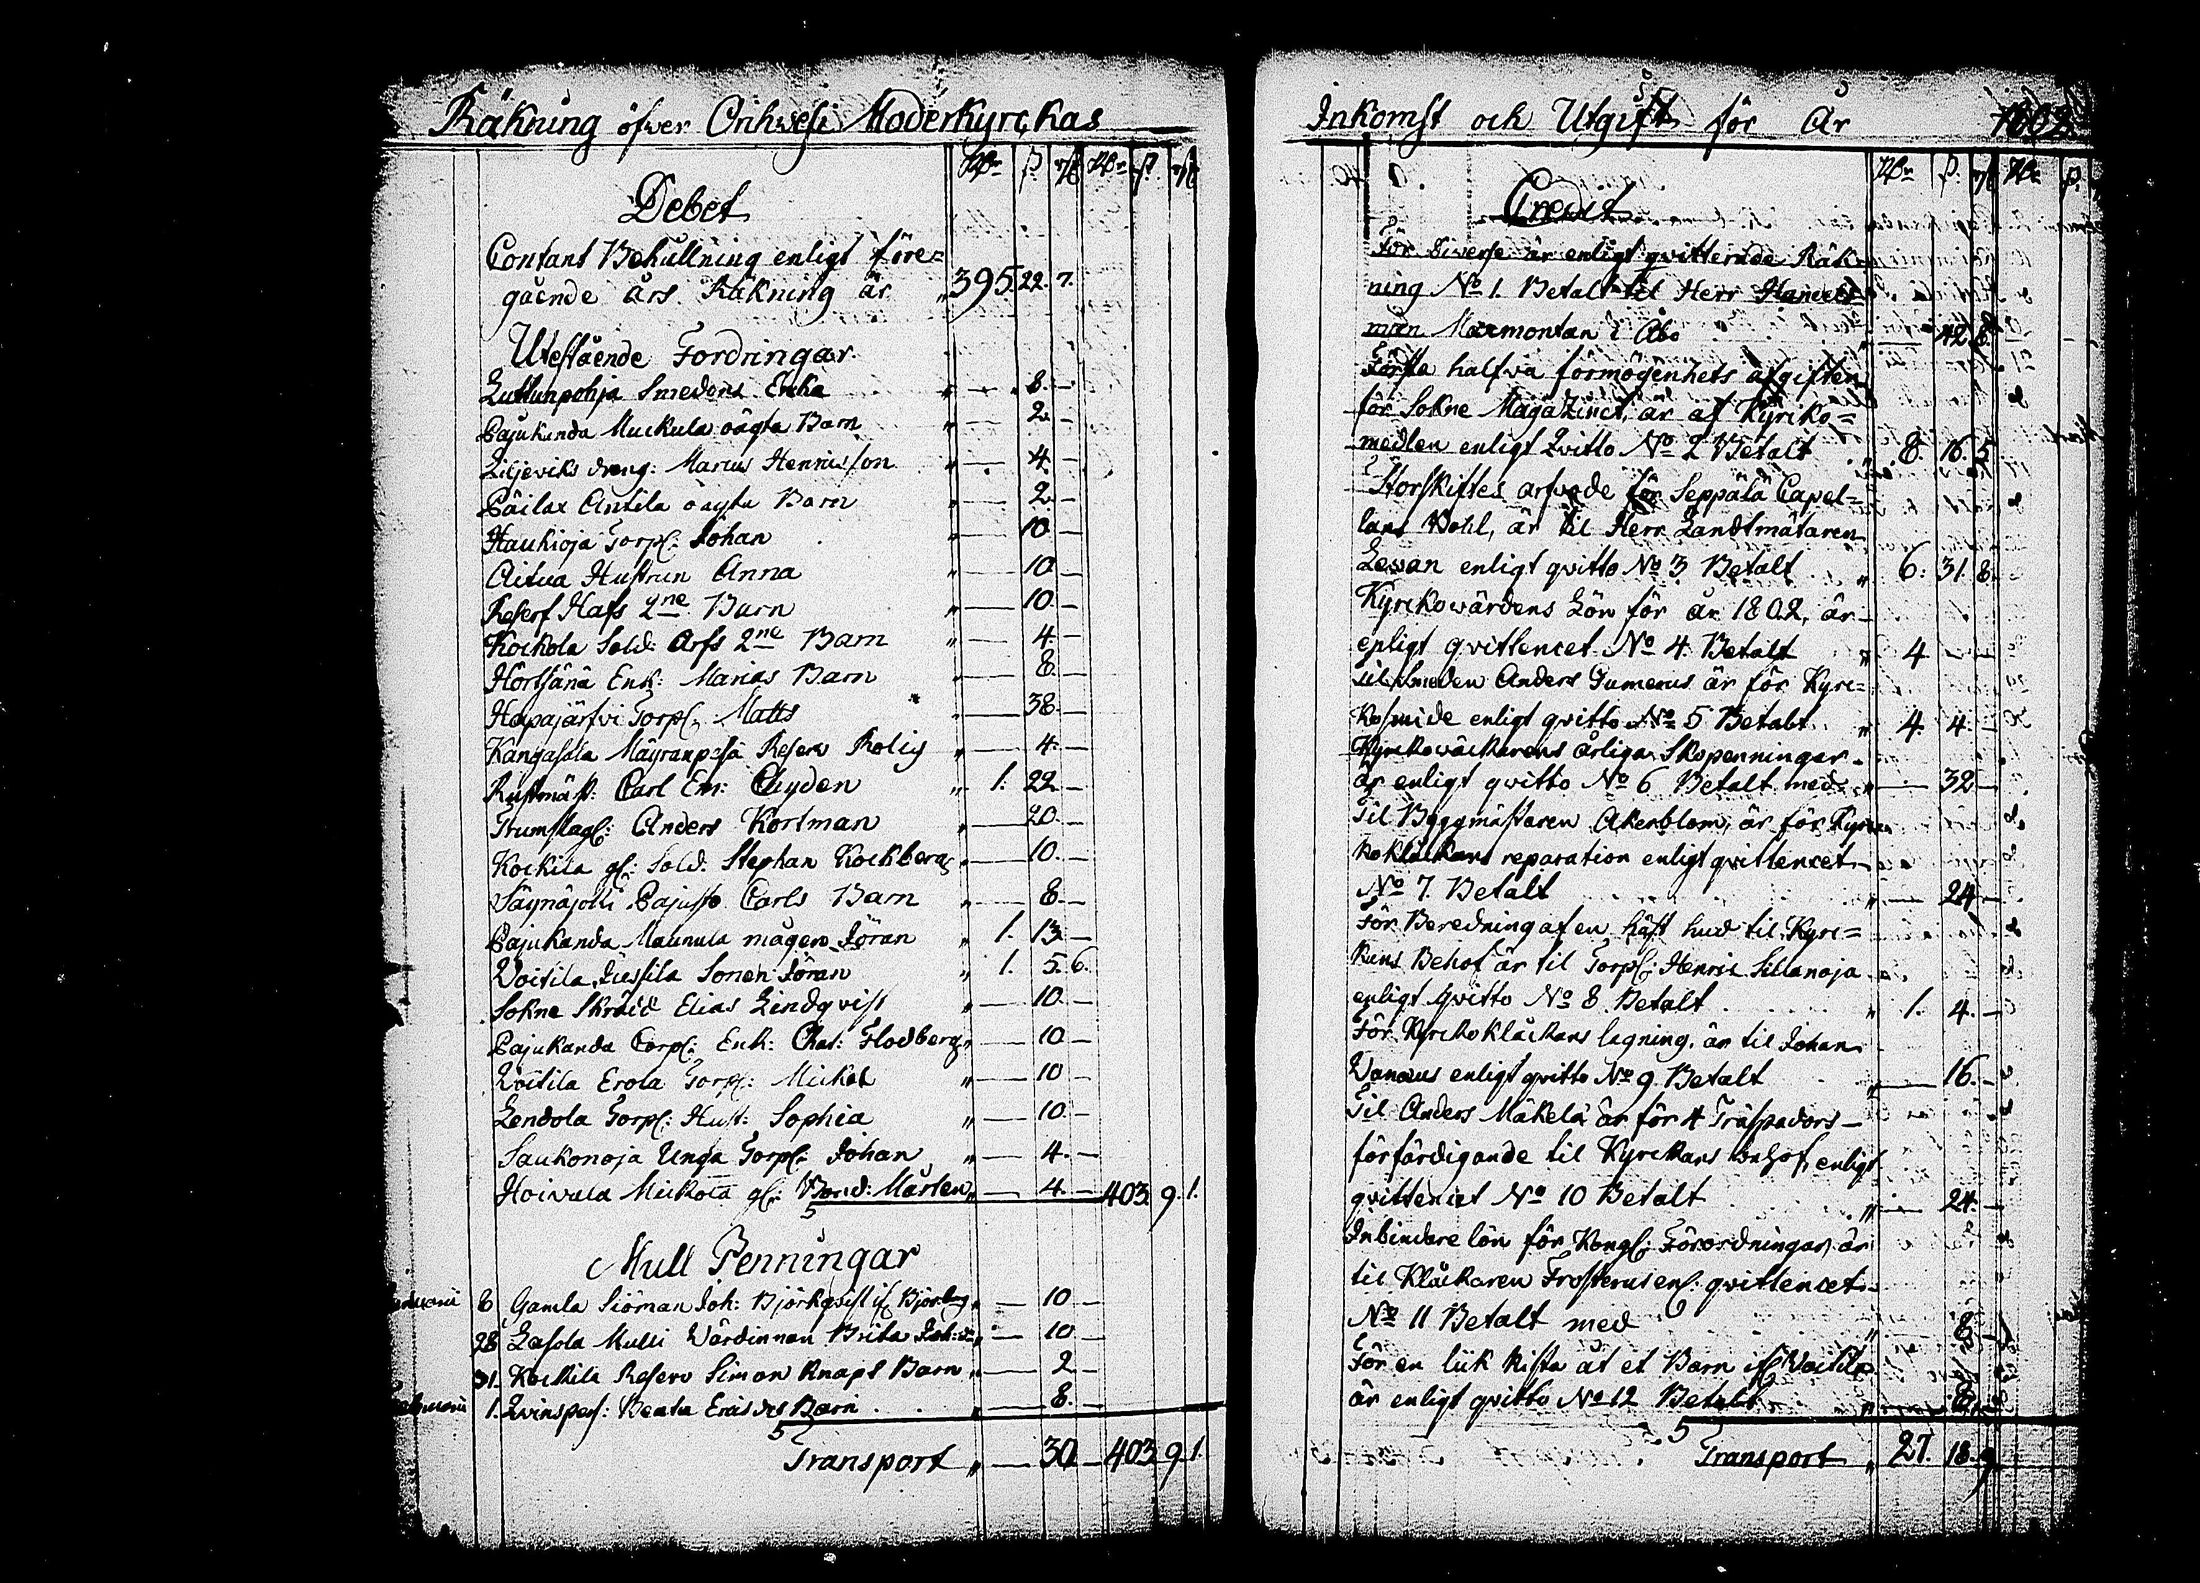 Räkning öfver Orihvesi Moderkyrckas
Rdr ß rst Rdr ß rst
Debet
Contant Behållning enligt före=
gående års Räkning är " 395. 22. 7.
Utestående Fordringar
Luttunpohja Smedens Enka " — 8. —
Pajukanda Muckula oägta Barn " — 2. —
Liljeviks dreng: Marcus Henricsson " — 4. —
Päilax Antila oägta Barn " — 2. —
Haukioja Torp: Johan " — 10. —
Aitua Hustrun Anna " — 10. —
Reserf Hafs 2ne Barn " — 10. —
Kockola Sold: Arfs 2ne Barn " — 4. —
Hortsänä Enk: Marias Barn " — 8. —
Hapajärfvi Torp: Matts " — 38. —
Kangasala Märanpesä Reserv Rolig " — 4. —
Rustmäst: Carl Em: Clyden " 1. 22. —
Trumslag: Anders Kortman " — 20. —
Kockila gl: Sold. Stephan Kockberg " — 10. —
Säynäjoki Pajusto Carls Barn " — 8. —
Pajukanda Maunula mågen Jöran " 1. 13. —
Voitila Jussila Sonen Jöran " 1. 5. 6.
Sokne Skräd Elias Lindqvist " — 10. —
Pajukanda Corp: Enk: Chat: Flodberg " — 10. —
Voitila Erola Torp: Mickel " — 10. —
Lendola Torp: Hust: Sophia " — 10. —
Saukonoja Unga Torp: Johan " — 4. —
Hoivala Mickola gl: Bond: Mårten " — 4. — 403. 9. 1.
Mull Penningar
6 Gamla Siöman Joh: Björkqvist if Björ " — 10 —
28 Lasola Mulli Wärdinnan Brita Joh: d: " — 10 —
31. Kockila Reserv Simon Knapes Barn " — 2 —
1. Qvinspers: Beata Ericsdrs Barn " — 8. —
Transport " — 30 — 403. 9. 1.
Inkomst och Utgift för År 1802.
Rdr ß rst Rdr ß
Credit
För Diverse är enligt qvitterade Räk=
ning No 1. Betalt til Herr Handels
man Marmontan i Åbo " — 42. 8.
Första halfva förmögenhets afgiften
för Sokne Magazinet, är af Kyrko=
medlen enligt Qvitto No 2 Betalt " 8. 16. 5
Storskiftes arfvode för Seppälä Capel=
lans Bohl, är til Herr Landtmätaren
Levan enligt qvitto No 3 Betalt " 6. 31. 8.
Kyrckowärdens Lön för år 1802, är
enligt qvittencet No 4. Betalt " 4 — —
Til Smeden Anders Gumerus är för Kyrc=
kosmide enligt qvitto No 5 Betalt " 4. 4. —
Kyrckowäckarens årliga Skopenningar
är enligt qvitto No 6 Betalt med " — 32 —
Til Byggmästaren Åkerblom, är för Kyrc
koklåckans reparation enligt qvittencet
No 7. Betalt " — 24 —
För Beredning af en häst hud til Kyrc=
kans Behof är til Torp: Henric Sillanoja
enligt qvitto No 8. Betalt " 1. 4. —
För Kyrckoklåckans lagning, är til Johan
Wanaus enligt qvitto No 9. Betalt " — 16. —
Til Anders Mäkelä är för 4 Träspadors
förfärdigande til Kyrckans behof, enligt
qvittencet No 10 Betalt " — 24. —
Inbindare lön för Kongl: Förordningar, är
til Klåckaren Frosterus enl: qvittencet
No 11 Betalt med " — 8 —
För en liik kista åt et Barn if Voitila
är enligt qvitto No 12 Betalt " — 8. —
Transport " 27. 18. 9